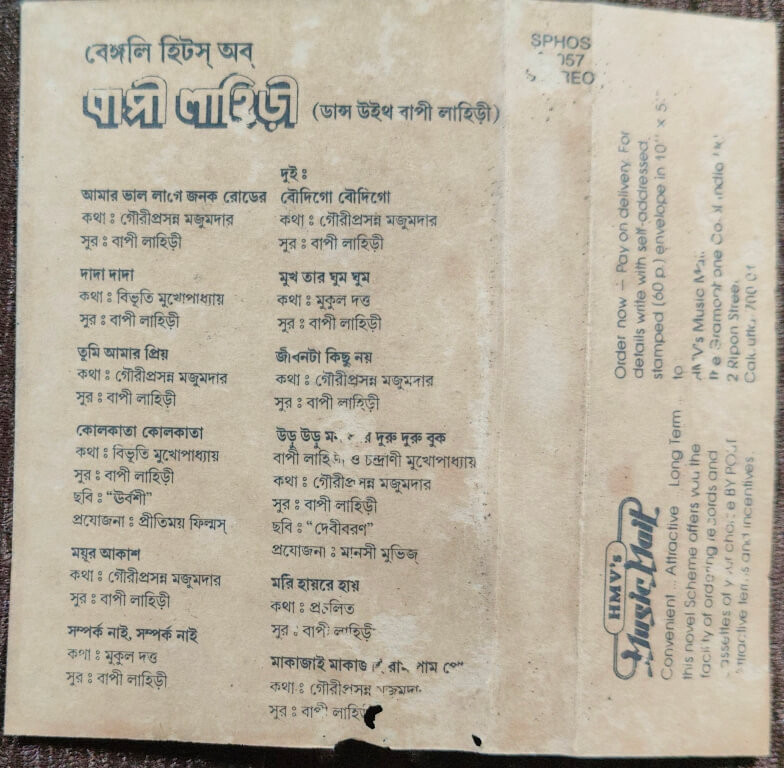 বেঙ্গলি হিটস্ অব্
বাপী লাহিড়ী (ডান্স উইথ বাপী লাহিড়ী)
আমার ভাল লাগে জনক রোডের
কথা ঃ গৌরীপ্রসন্ন মজুমদার
সুর ঃ বাপী লাহিড়ী
দাদা দাদা
কথা ঃ বিভূতি মুখোপাধ্যায়
সুর ঃ বাপী লাহিড়ী
তুমি আমার প্রিয়
কথা ঃ গৌরীপ্রসন্ন মজুমদার
সুর ঃ বাপী লাহিড়ী
কোলকাতা কোলকাতা
কথা ঃ বিভূতি মুখোপাধ্যায়
সুর ঃ বাপী লাহিড়ী
ছবি ঃ "ঊর্বশী"
প্রযোজনা ঃ প্রীতিময় ফিল্মস্
ময়ূর আকাশ
কথা ঃ গৌরীপ্রসন্ন মজুমদার
সুর ঃ বাপী লাহিড়ী
সম্পর্ক নাই, সম্পর্ক নাই
কথা ঃ মুকুল দত্ত
সুর ঃ বাপী লাহিড়ী
দুই ঃ
বৌদিগো বৌদিগো
কথা ঃ গৌরীপ্রসন্ন মজুমদার
সুর ঃ বাপী লাহিড়ী
মুখ তার ঘুম ঘুম
কথা ঃ মুকুল দত্ত
সুর ঃ বাপী লাহিড়ী
জীবনটা কিছু নয়
কথা ঃ গৌরীপ্রসন্ন মজুমদার
সুর ঃ বাপী লাহিড়ী
উড়ু উড়ু দুরু দুরু বুক
বাপী লাহিড়ী ও চন্দ্রাণী মুখোপাধ্যায়
কথা ঃ গৌরীপ্রসন্ন মজুমদার
সুর ঃ বাপী লাহিড়ী
ছবি ঃ "দেবীবরণ"
প্রযোজনা ঃ মানসী মুভিজ্
মরি হায়রে হায়
কথা ঃ প্রচলিত
সুর ঃ বাপী লাহিড়ী
মাকাজাই
কথা ঃ গৌরীপ্রসন্ন মজুমদার
সুর ঃ বাপী লাহিড়ী
SPHOS
STEREO
HMV's
Music Mail
Convenient ... Attractive ... Long Term
this novel Scheme offers you the
facility of ordering records and
cassettes of your choice BY POST
attractive terms and incentives
Order now – Pay on delivery. For
details write with self-addressed,
stamped (60 p.) envelope in 10" x 5"
to
HMV's Music Mail
The Gramophone Co. of India
2 Ripon Street
Calcutta